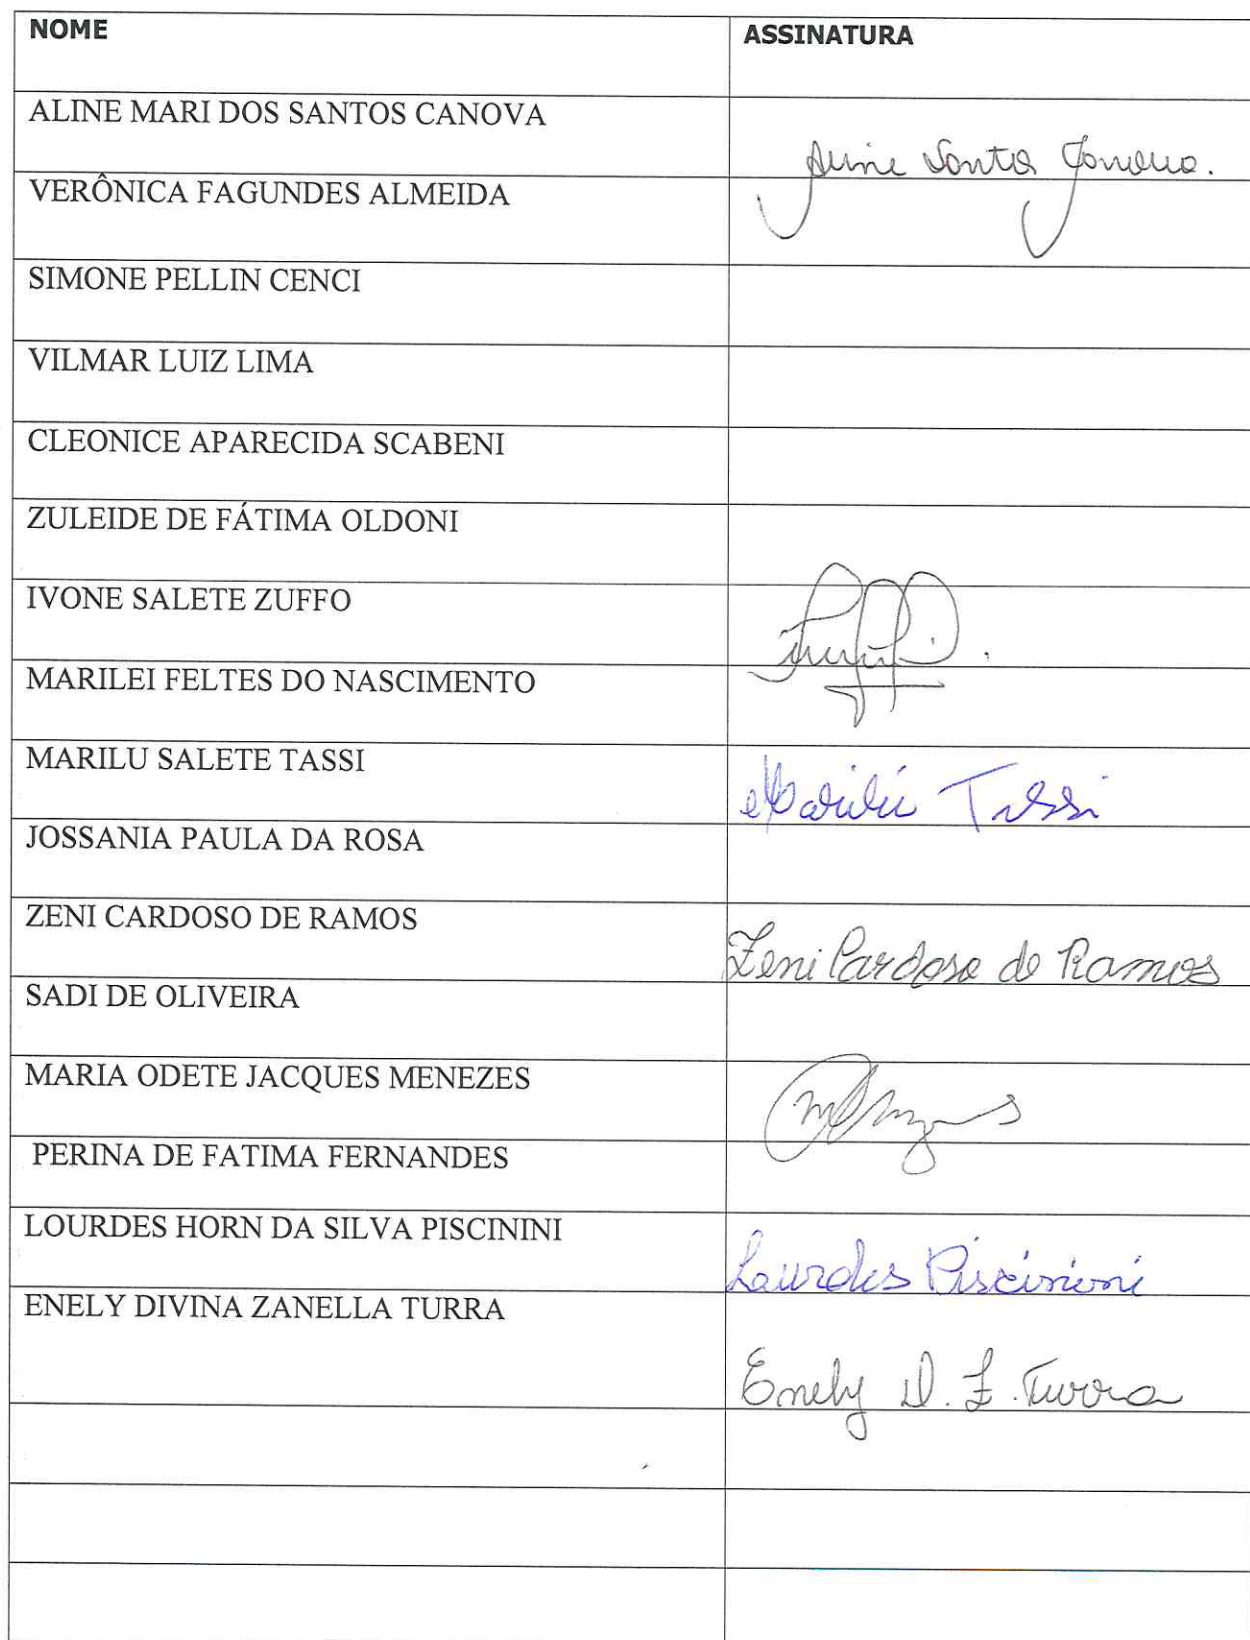 NOME ASSINATURA
ALINE MARI DOS SANTOS CANOVA
VERÔNICA FAGUNDES ALMEIDA
SIMONE PELLIN CENCI
VILMAR LUIZ LIMA
CLEONICE APARECIDA SCABENI
ZULEIDE DE FÁTIMA OLDONI
IVONE SALETE ZUFFO
MARILEI FELTES DO NASCIMENTO
MARILU SALETE TASSI Marilú Tassi
JOSSANIA PAULA DA ROSA
ZENI CARDOSO DE RAMOS Zeni Cardoso de Ramos
SADI DE OLIVEIRA
MARIA ODETE JACQUES MENEZES
PERINA DE FATIMA FERNANDES
LOURDES HORN DA SILVA PISCININI Lourdes Piscinini
ENELY DIVINA ZANELLA TURRA Enely D. Z. Turra